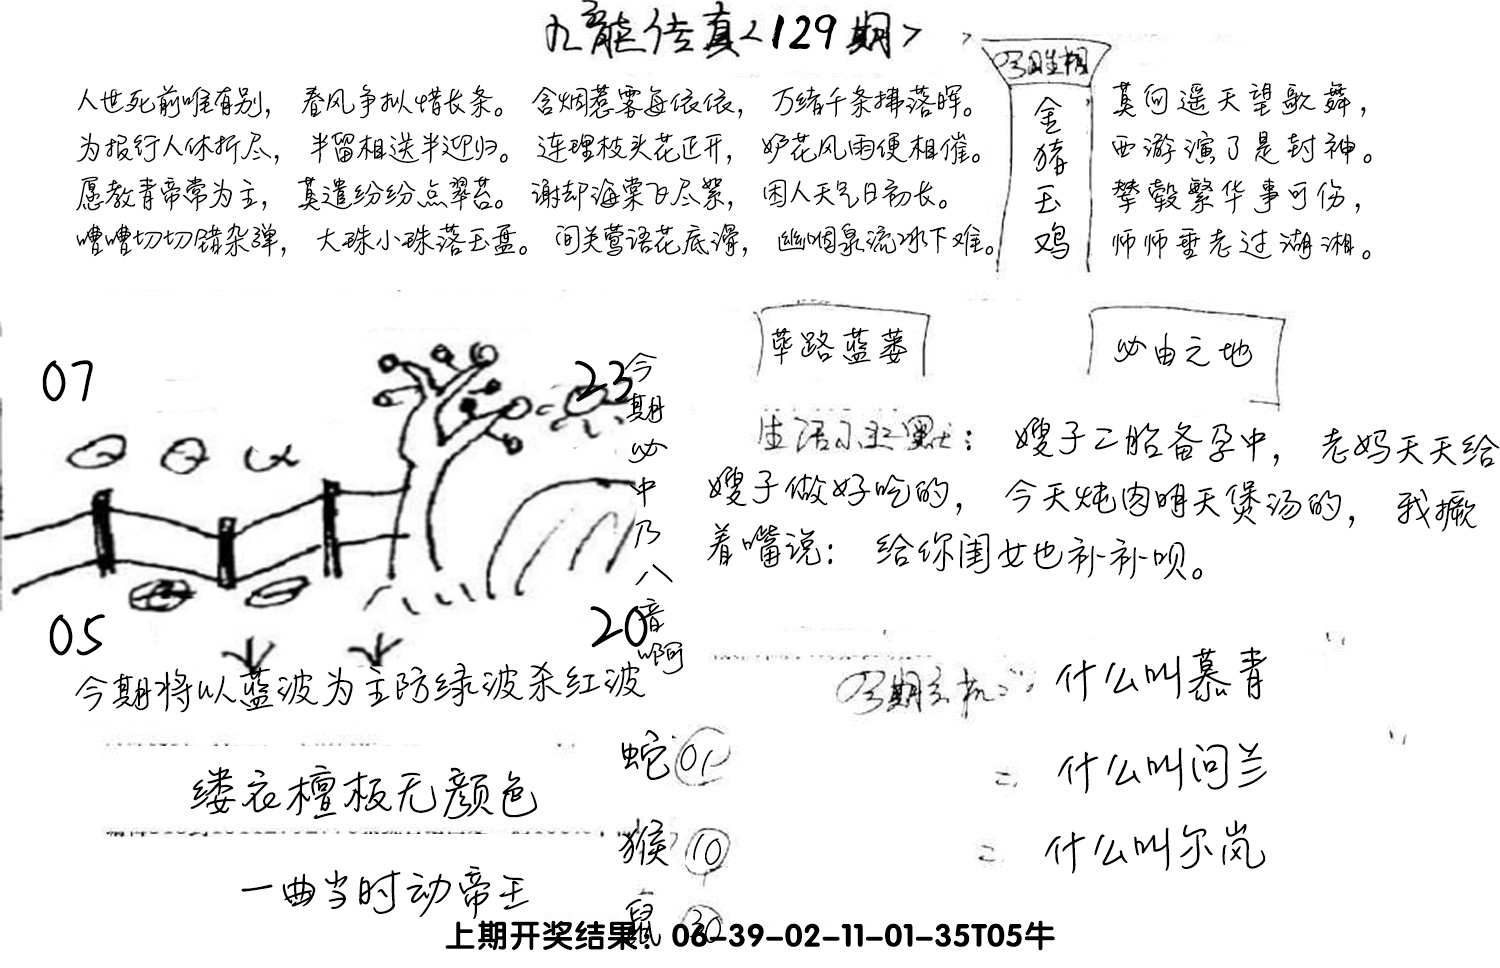 九龙传真<129期>
今日生相
金猪玉鸡
人世死前唯有别，春风争拟惜长条。含烟惹雾每依依，万绪千条拂落晖。
为报行人休折尽，半留相送半迎归。连理枝头花正开，妒花风雨便相催。
愿教青帝常为主，莫遣纷纷点翠苔。谢却海棠飞尽絮，困人天气日初长。
嘈嘈切切错杂弹，大珠小珠落玉盘。间关莺语花底滑，幽咽泉流冰下难。
莫向遥天望歌舞，
西游演了是封神。
辇毂繁华事可伤，
师师垂老过湖湘。
筚路蓝蒌
必由之地
07
23
05
20
今期必中乃八音啊
生活小幽默：嫂子二胎备孕中，老妈天天给
嫂子做好吃的，今天炖肉明天煲汤的，我撅
着嘴说：给你闺女也补补呗。
今期将以蓝波为主防绿波杀红波
今期玄机：什么叫慕青
= 什么叫问兰
= 什么叫尔岚
缕衣檀板无颜色
一曲当时动帝王
蛇 01
猴 10
鼠 30
上期开奖结果：06-39-02-11-01-35T05牛